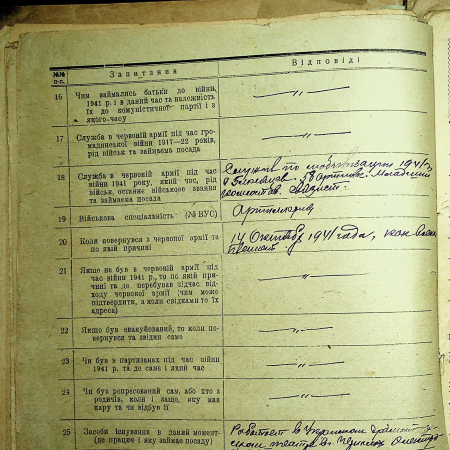 №№ п.п.
Запитання
Відповіді
16
Чим займались батьки до війни
1941 р. і в даний час та належність
їх до комуністичної партії і з
якого часу
— „ —
17
Служба в червоній армії під час гро-
мадянської війни 1917—22 років,
рід військ та займаєма посада
— „ —
18
Служба в червоній армії під час
війни 1941 року, який час, рід
військ, останнє військове звання
та займаєма посада
по мобилизации 1941 г.
Младший
19
Військова спеціальність (№ ВУС)
Артиллерия
20
Коли повернувся з червоної армії та
по якій причині
14 Октября 1941 года, как
21
Якщо не був в червоній армії під
час війни 1941 р., то по якій при-
чині та де перебував підчас від-
ходу червоної армії (чим може
підтвердити, а коли свідками то їх
адреса)
— „ —
22
Якщо був евакуйований, то коли по-
вернувся та звідки саме
— „ —
23
Чи був в партизанах під час війни
1941 р. та де саме і який час
— „ —
24
Чи був репресований сам, або хто з
родичів, коли і защо, яку мав
кару та чи відбув її
— „ —
25
Засоби існування в даний момент
(де працює і яку займає посаду)
Работает в
театра